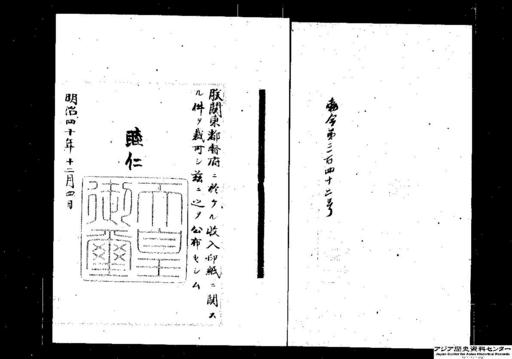 勅令第三百四十二号
朕関東都督府ニ於ケル収入印紙ニ関ス
ル件ヲ裁可シ茲ニ之ヲ公布セシム
睦仁
天皇
御璽
明治四十年十二月四日
アジア歴史資料センター
Japan Center for Asian Historical Records